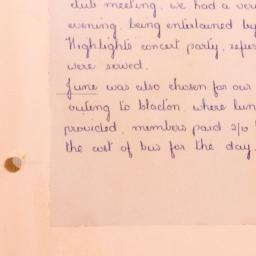 club meeting, we had a very
evening, being entertained by
Highlights concert party, refres
were served.
June was also chosen for our
outing to Clacton, where lun
provided, members paid 2/6
the cost of bus for the day.